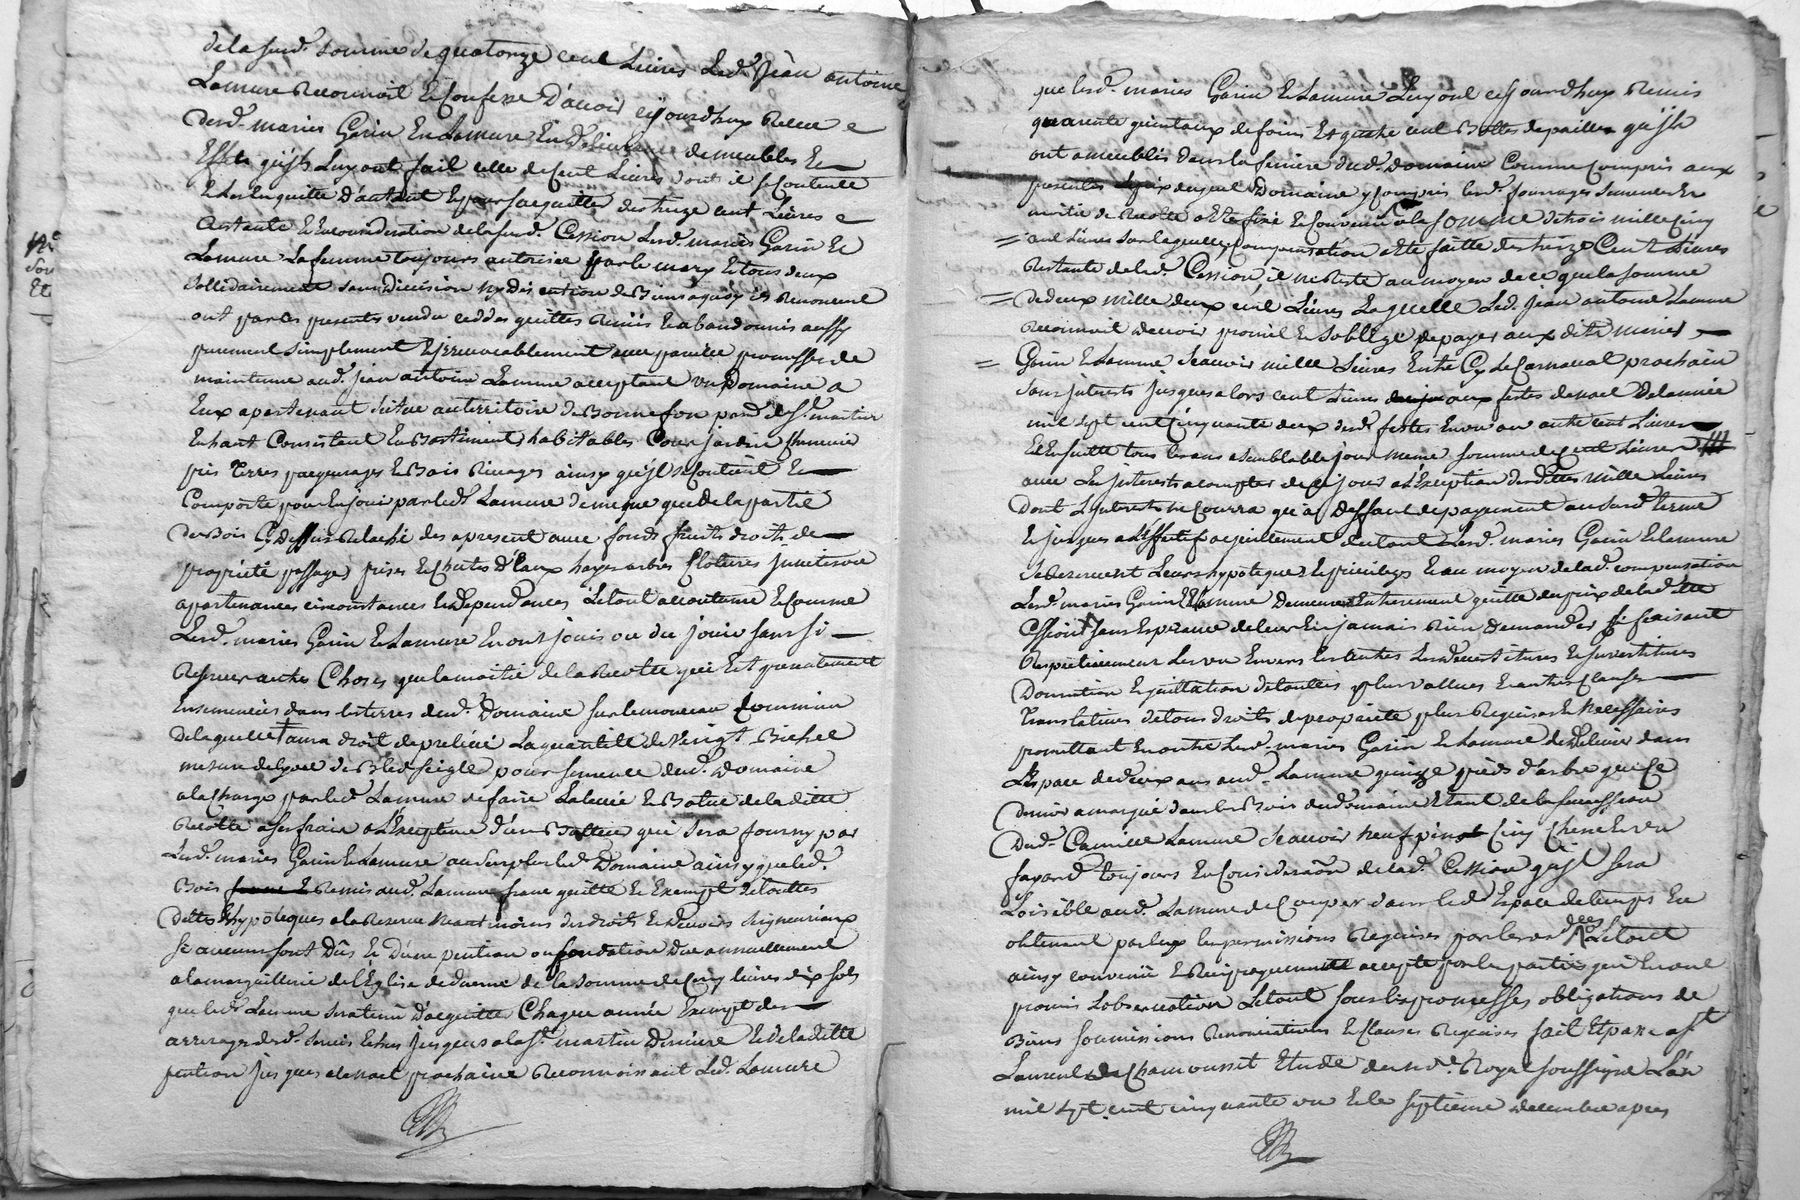 de la susd. somme de quatorze cent Livres Led. Jean antoine
Lamure Reconnoit Et Confesse D'avoir cejourdhuy Receu
desd. mariés Garin Et Lamure En de meubles Et
Effets quils Luy ont fait celle de Cent Livres dont il se Contente
Et Les En quitte D'autant Et pour s'acquitter des treize cent Livres
Restante Et En consideration de la susd. Cession Lesd. mariés Garin Et
Lamure La femme toujours autorisée par le mary Et tous deux
sollidairement sans Division ny Discution de Biens a quoy ils Renoncent
ont par les presentes vendu ceddé quitté Remis Et abandonnés aussy
purement simplement Et jrrevocablement avec pareille promesse de
maintenue aud. jean antoine Lamure acceptant un Domaine a
Eux apartenant scitué au territoire de Bonnefon par.d de St. martin
En haut Consistant En Bastiments habitables Cour jardin
prés Terres paquerages Et Bois Rivages ainsy qu'jl se Contient Et
Comporte pour En jouir par led. Lamure de meme que de la partie
de Bois Cy Dessus Relaché des a present avec fonds fruits droits de
proprieté passages prises Et Chutes d'Eaux hayes arbres Clotures
apartenances circonstances Et Dependances Le tout accoutumé Et comme
Lesd. mariés Garin Et Lamure En ont jouis ou du jouir sans si
Reserver autre Choses que la moitié de la Recolte qui Est presentement
Ensemencée dans les terres dud. Domaine sur le monceau Commun
De laquelle aura droit de prelevé La quantité de Vingt Bichet
mesure de de Bled seigle pour semence dud. Domaine
a la Charge par led. Lamure de faire La levée Et Batue de la ditte
Recolte a ses frais a L'Exception d'un Batteur qui sera fourny par
Lesd. mariés Garin Et Lamure au surplus led. Domaine ainsy que led.
Bois Remis aud. Lamure franc quitte Et Exempt de touttes
dettes hypoteques a la Reserve neantmoins des droits Et Devoirs seigneuriaux
si aucuns sont Dûs Et D'une pention ou fondation due annuellement
a la marguillerie de l'Eglise de duerne de la somme de Cinq livres dix sols
que led. Lamure sera tenu D'acquitté Chaque année Exempt des
arrerages desd. servis Echus jusques a la St. martin Derniere Et de la ditte
pention jusques a la noel prochaine Reconnoissant Led. Lamure
que lesd. mariés Garin Et Lamure Luy ont cejourdhuy Remis
quarente quintaux de foins Et quatre cent Bottes de paille qu'jls
ont ameublés dans la feniere dud. Domaine Comme Compris aux
presentes Le prix duquel Domaine y Compris lesd. fourrages semences Et
moitié de Recolte a Eté fixé Et Convenu a la somme de trois mille Cinq
cent Livres sur laquelle Compensation a Eté faitte des treize Cent Livres
Restante de lad. Cession, il ne Reste au moyen de ce que la somme
de deux mille deux cent Livres Laquelle Led. jean antoine Lamure
Reconnoit devoir promet Et s'oblige de payer aux dits mariés
Garin Et Lamure Scavoir mille Livres Entre Cy Le Carnaval prochain
sans jnterests jusques alors cent Livres aux festes de noel De l'année
mil sept cent Cinquante deux desd. festes En un an autre cent Livres
Et Ensuitte tous les ans a semblable jour meme somme de cent Livres
avec Les jnterests a compter de ce jour a l'Exception desdittes mille Livres
Dont L'jnterest ne Courra qu'a Deffaut de payement au susd. terme
Et jusques a L'Effectif acquittement du tout Lesd. mariés Garin Et Lamure
se Reservent Leurs hypoteques Et privileges Et au moyen de lad. compensation
Lesd. mariés Garin Et Lamure Demeurent Entierement quitte du prix de lad.
Cession sans Esperance de leur En jamais Rien Demander se faisant
Respectivement Les uns Envers Les autres Les Devestitures Et jnvestitures
Donnation Et quittation de touttes plus vallues Et autres Clauses
translatives de tous droits de proprieté plus Requises Et Necessaires
promettant En outre Lesd. mariés Garin Et Lamure de Delivrer dans
L'Espace de deux ans aud. Lamure quinze pieds d'arbre que Ce
Dernier a marqué dans les Bois du domaine Etant de la succession
Dud. Camille Lamure Scavoir neuf pins Cinq Chene Et un
fayard toujours En Consideraôn de lad. Cession qu'jl sera
Loisible aud. Lamure de Couper dans led. Espace de temps En
obtenant par Eux les permissions Requises par les ord.ces Le tout
ainsy convenû Et Reciproquement accepté par les parties qui En ont
promis L'observation Le tout sous les promesses obligations de
Biens soumissions Renonciations Et Clauses Requises fait Et passé a St
Laurent de Chamousset Etude du no.re Royal soussigné L'an
mil sept cent cinquante un Et le septieme decembre apres